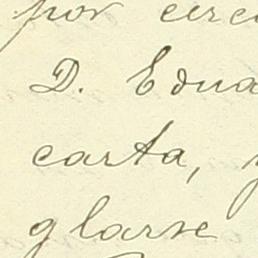 por circ
D. Edua
carta, y
glarse